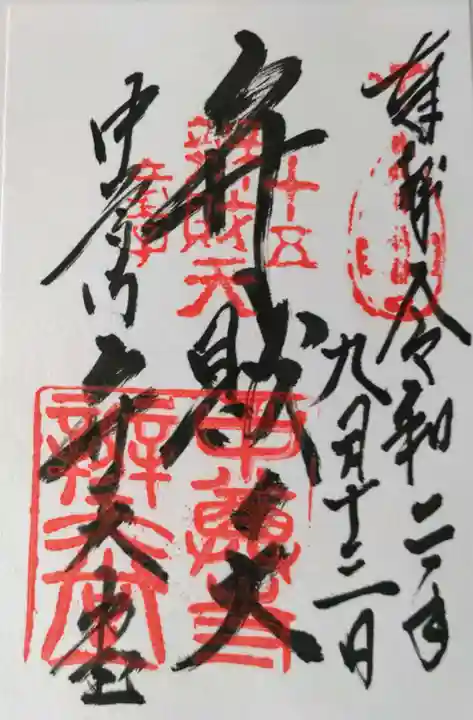 奉拝 令和二年
九月十二日
十五
弁財天
辨財天
童子
中尊寺 弁天堂
中尊寺
辨天堂